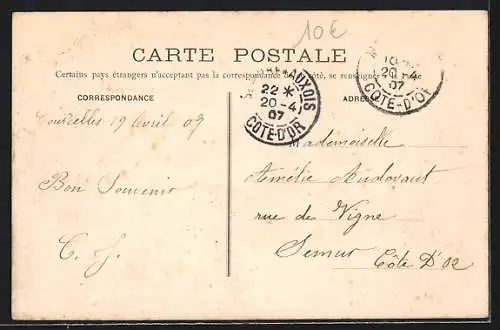 10€
CARTE POSTALE
Certains pays étrangers n'acceptent pas la correspondance de ce côté, se renseigner à la poste
CORRESPONDANCE
ADRESSE
AUXOIS
22 *
20-4
07
CÔTE-D'OR
10
20-4
07
CÔTE-D'OR
19 Avril 07
Bon Souvenir
C. J.
Mademoiselle
Amélie
rue de Vigne
Semur
Côte D'Or